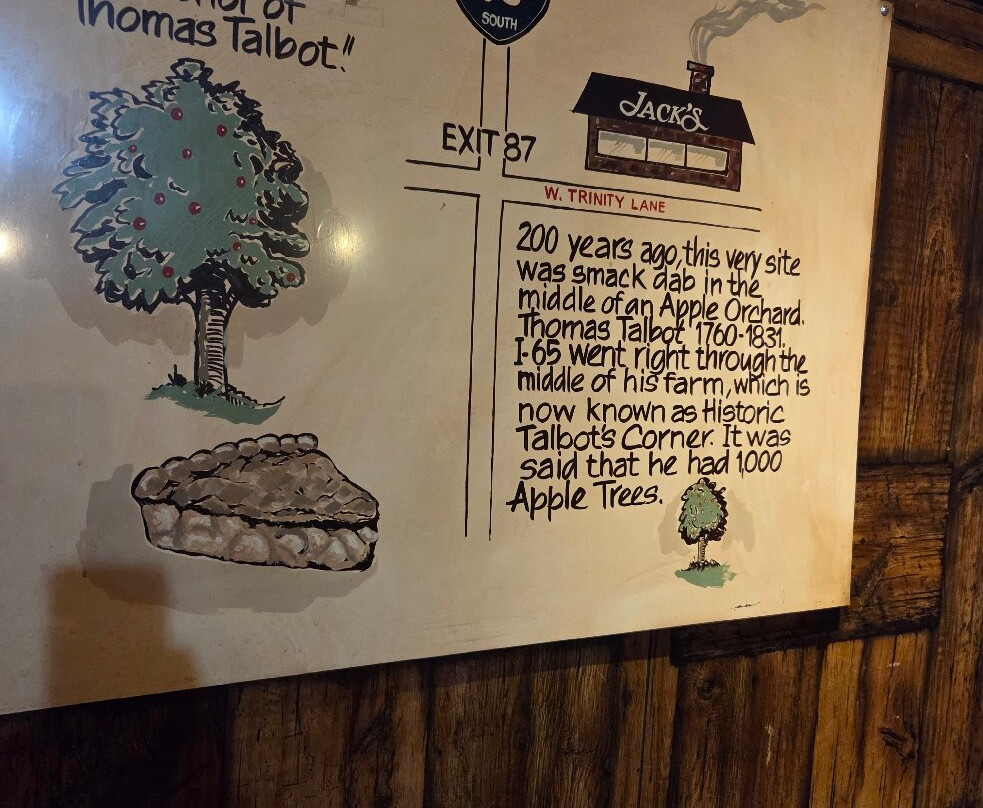 of
Thomas Talbot."
SOUTH
JACK'S
EXIT 87
W. TRINITY LANE
200 years ago, this very site
was smack dab in the
middle of an Apple Orchard.
Thomas Talbot 1760-1831.
I-65 went right through the
middle of his farm, which is
now known as Historic
Talbot's Corner. It was
said that he had 1,000
Apple Trees.